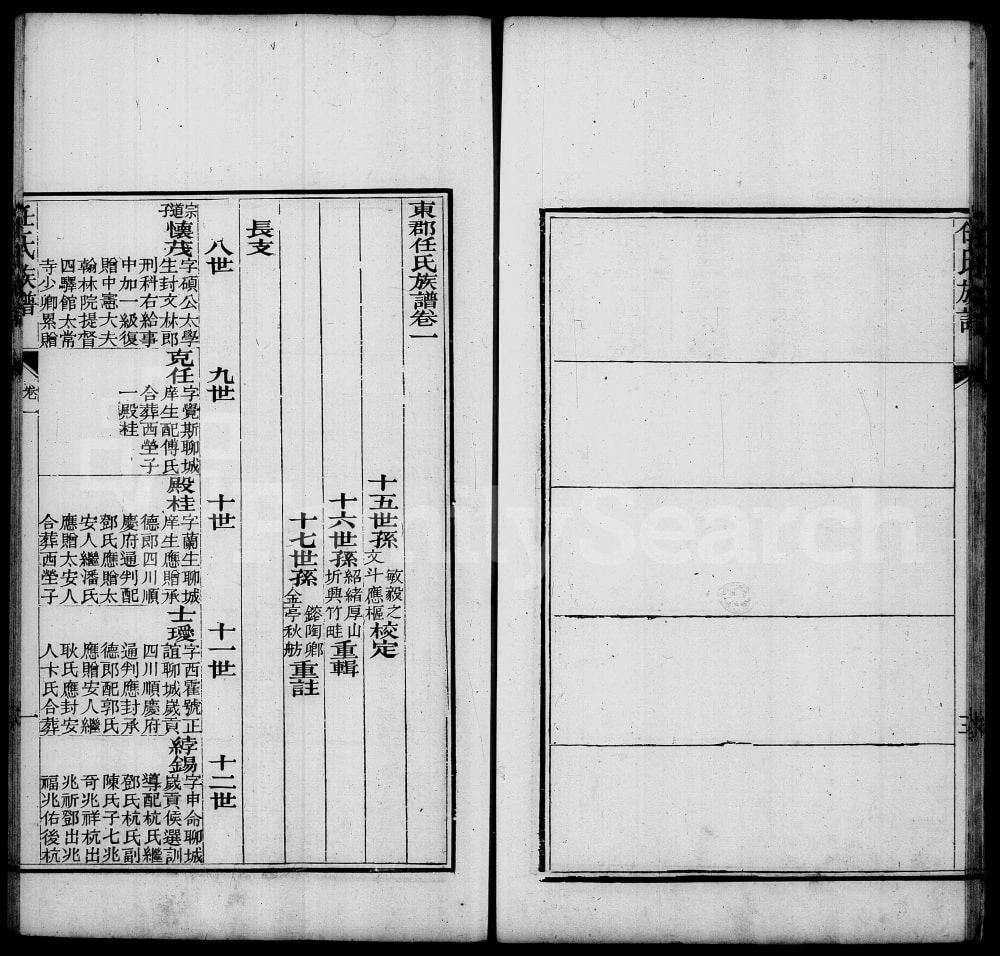 任氏族譜
三
東郡任氏族譜卷一
十五世孫
敏毅之
文斗應樞
校定
十六世孫
紹緒厚山
圻興竹畦
重輯
十七世孫
鎔陶鄉
金亭秋舫
重註
長支
八世
九世
十世
十一世
十二世
宗道子
懷茂
字碩公太學
生封文林郎
刑科右給事
中加一級復
贈中憲大夫
翰林院提督
四驛館太常
寺少卿累贈
克任
字覺斯聊城
庠生配傅氏
合葬西塋子
一殿桂
殿桂
字蘭生聊城
庠生應贈承
德郎四川順
慶府通判配
鄧氏應贈太
安人繼潘氏
應贈太安人
合葬西塋子
士璦
字西霍號正
誼聊城歲貢
四川順慶府
通判應封承
德郎配郭氏
應贈安人繼
耿氏應封安
人卞氏合葬
綍錫
字申命聊城
歲貢侯選訓
導配杭氏繼
鄧氏杭氏副
陳氏子七兆
奇兆祥杭出
兆祈鄧出兆
福兆佑後杭
任氏族譜
卷一
一
FamilySearch